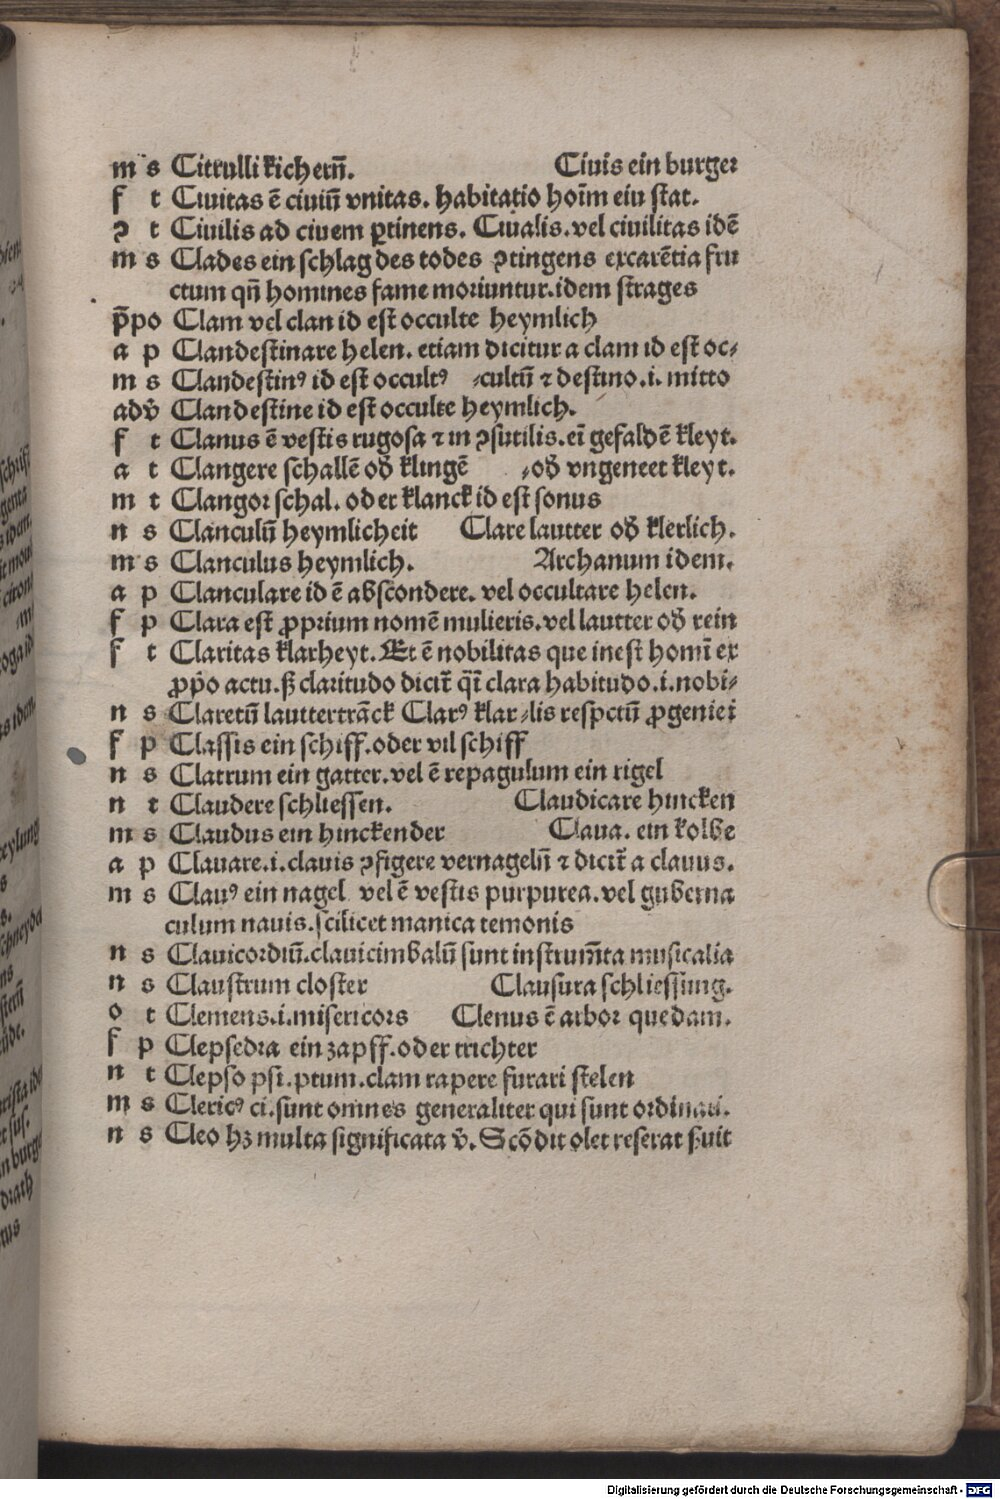 m s Citrulli kichern̄. Ciuis ein burger
f t Ciuitas ē ciuiū vnitas. habitatio hoīm eiu stat.
ꝯ t Ciuilis ad ciuem ꝑtinens. Ciualis. vel ciuilitas idē
m s Clades ein schlag des todes ꝯtingens ex carētia fru
ctum qn̄ homines fame moriuntur. idem strages
p̄po Clam vel clan id est occulte heymlich
a p Clandestinare helen. etiam dicitur a clam id est oc⸗
m s Clandestinꝰ id est occultꝰ ⸗cultū ⁊ destino .i. mitto
adv̄ Clandestine id est occulte heymlich.
f t Clanus ē vestis rugosa ⁊ in ꝯsutilis. eī gefaldē kleyt.
a t Clangere schallē od̄ klingē ⸗od̄ vngeneet kleyt.
m t Clangor schal. oder klanck id est sonus
n s Clanculū heymlicheit Clare lautter od̄ klerlich.
m s Clanculus heymlich. Archanum idem.
a p Clanculare id ē abscondere. vel occultare helen.
f p Clara est ꝓprium nomē mulieris. vel lautter od̄ rein
f t Claritas klarheyt. Et ē nobilitas que inest homī ex
ꝓp̄o actu. ß claritudo dicit̄ qī clara habitudo .i. nobi⸗
n s Claretū lauttertrāck Clarꝰ klar ⸗lis respctū ꝓgeniei
f p Classis ein schiff. oder vil schiff
n s Clatrum ein gatter. vel ē repagulum ein rigel
n t Claudere schliessen. Claudicare hincken
m s Claudus ein hinckender Claua. ein kolbe
a p Clauare .i. clauis ꝯfigere vernagelū ⁊ dicit̄ a clauus.
m s Clauꝰ ein nagel vel ē vestis purpurea. vel guberna
culum nauis. scilicet manica temonis
n s Clauicordiū. clauicimbalū sunt instrum̄ta musicalia
n s Claustrum closter Clausura schliessung.
o t Clemens .i. misericors Clenus ē arbor quedam.
f p Clepsedra ein zapff. oder trichter
n t Clepso psi. ptum. clam rapere furari stelen
m s Clericꝰ ci. sunt omnes generaliter qui sunt ordinati.
n s Cleo hꝫ multa significata v̄. Scōdit olet reserat ßuit
Digitalisierung gefördert durch die Deutsche Forschungsgemeinschaft - DFG